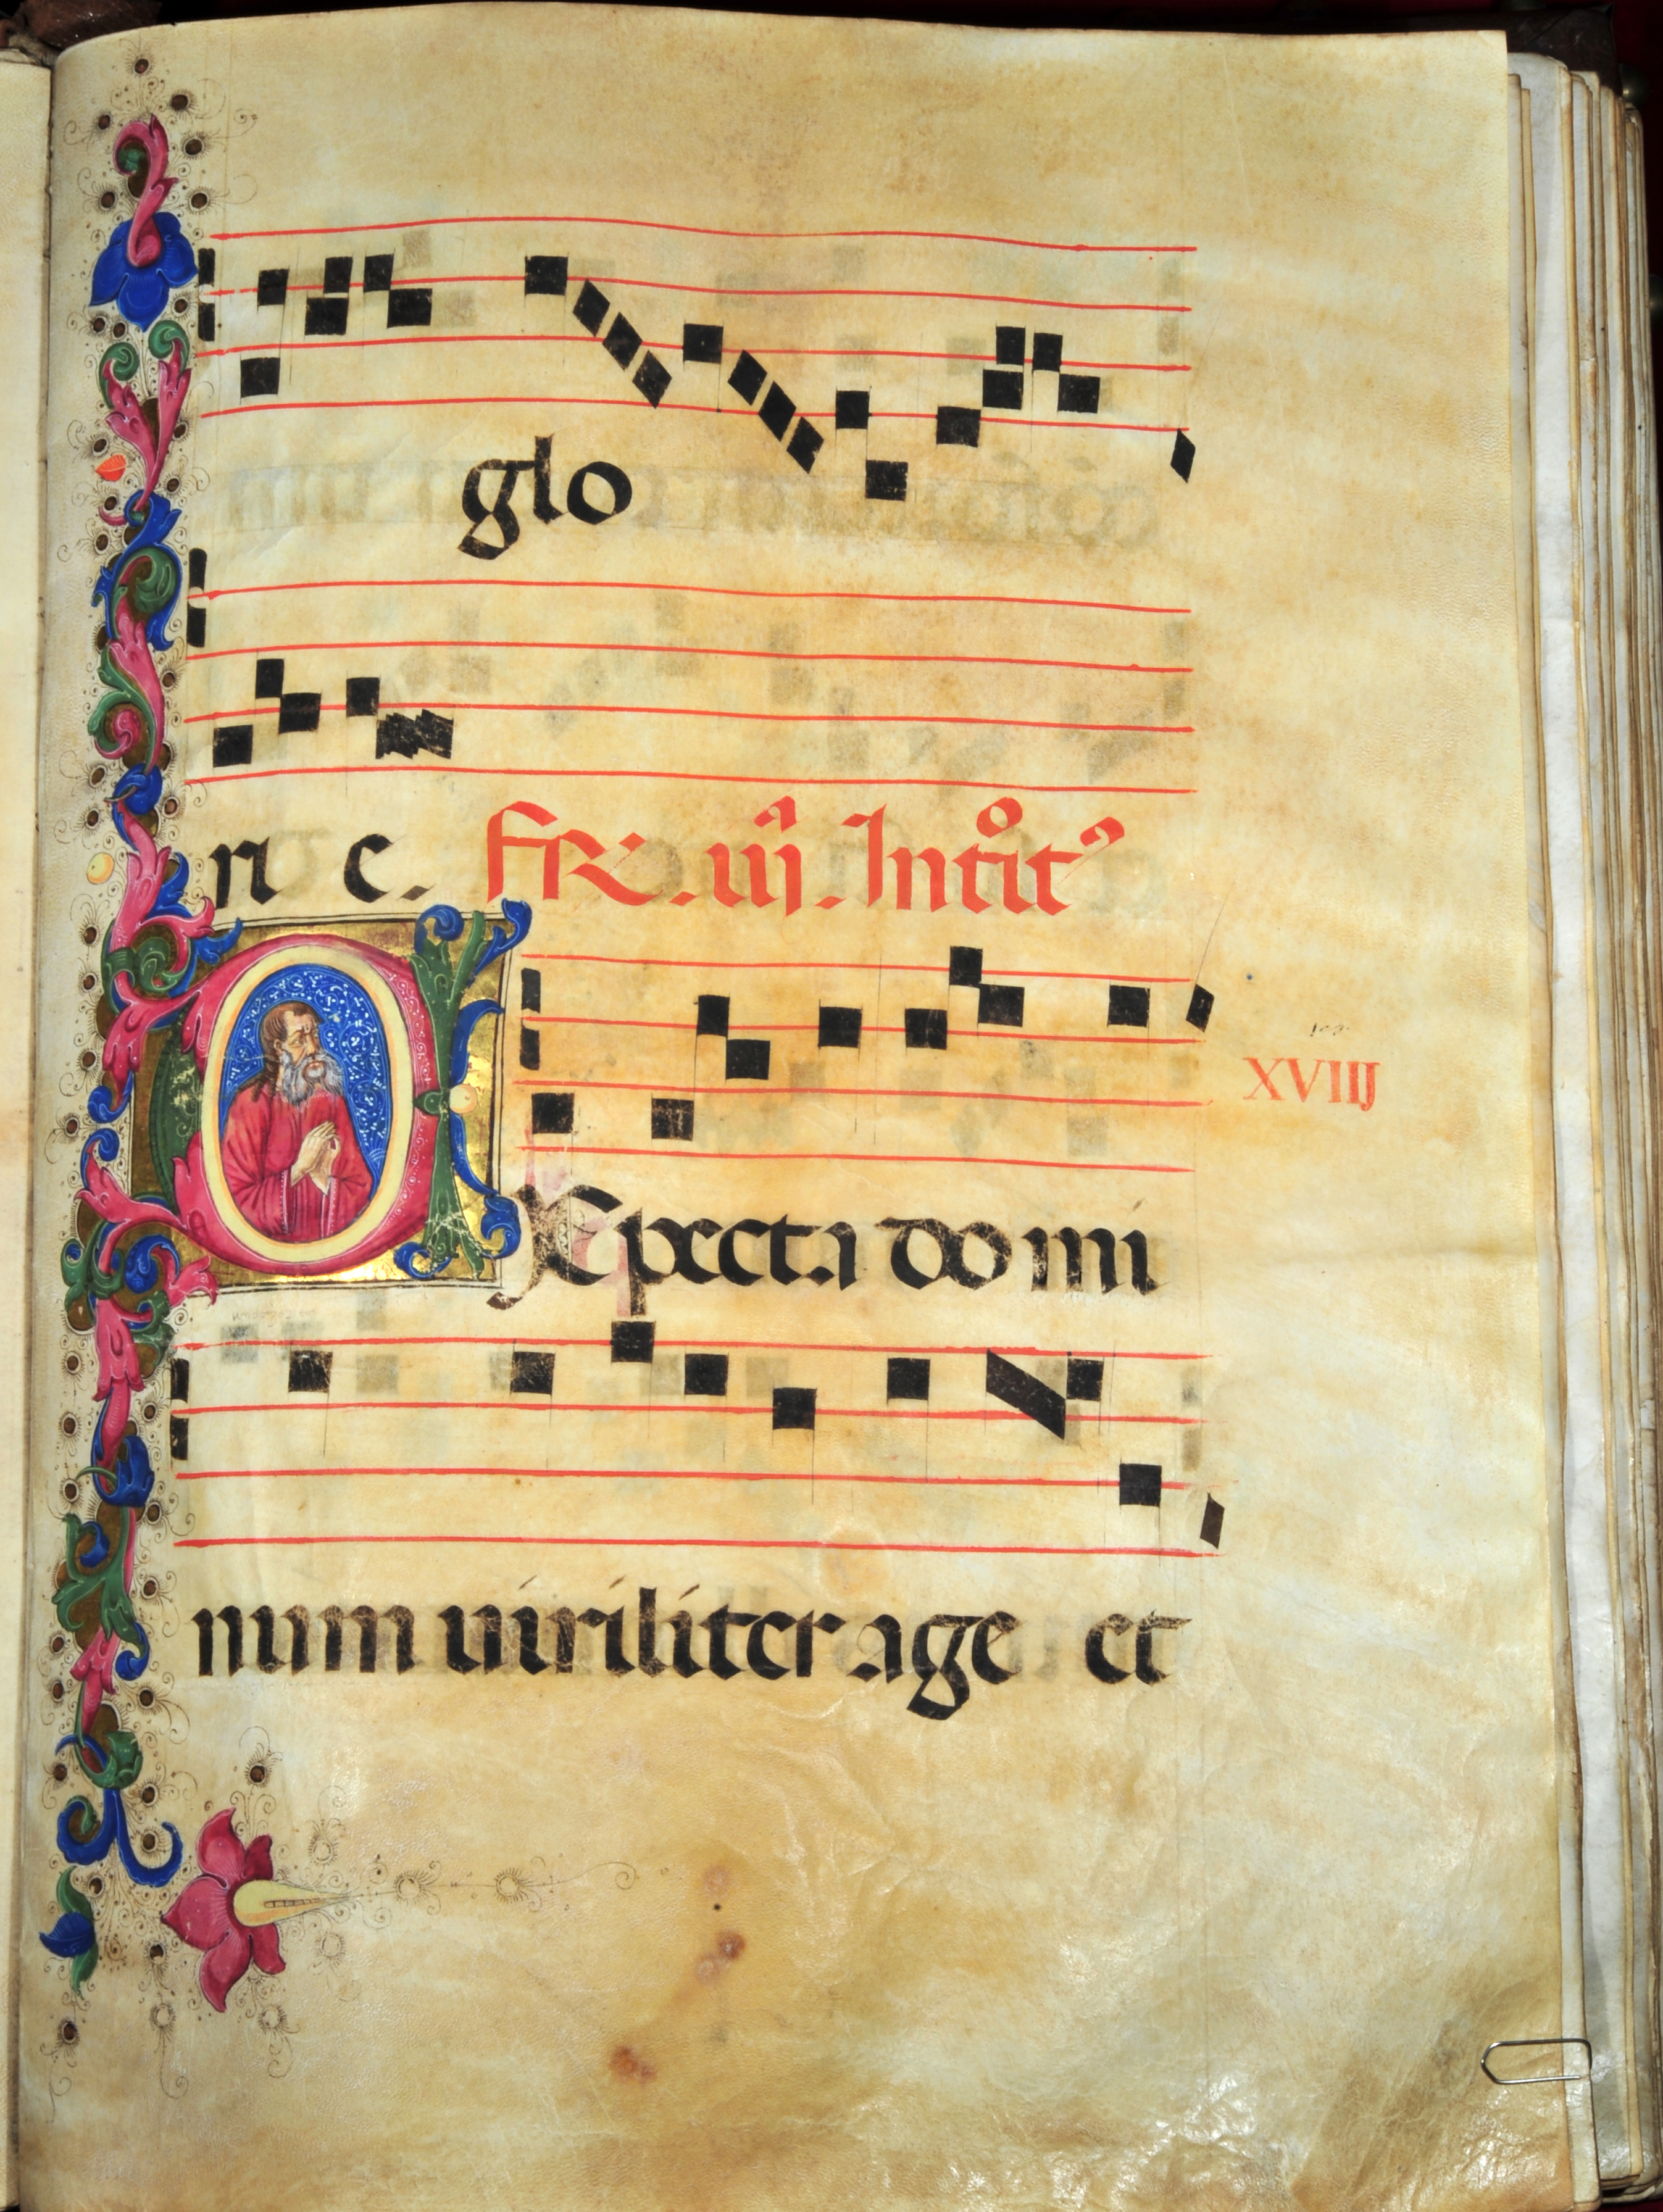 glo
ri e. Fr. iij. Introit9
XVIIJ
Expecta domi
num uiriliter age et